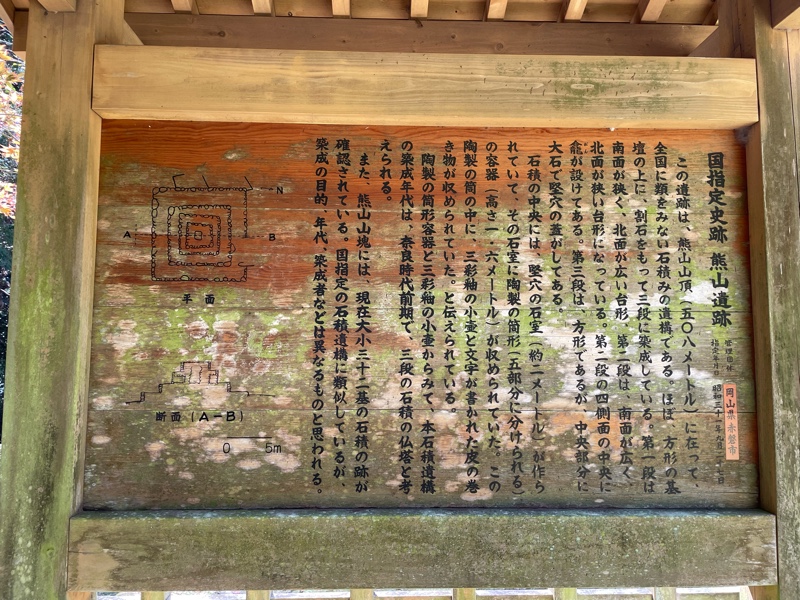 国指定史跡 熊山遺跡
管理団体 岡山県赤磐市
指定年月日 昭和三十一年九月二十七日
この遺跡は、熊山山頂(五〇八メートル)に在って、
全国に類をみない石積みの遺構である。ほぼ、方形の基
壇の上に、割石をもって三段に築成している。第一段は
南面が狭く、北面が広い台形、第二段は、南面が広く、
北面が狭い台形になっている。第二段の四側面の中央に
龕が設けてある。第三段は、方形であるが、中央部分に
大石で竪穴の蓋がしてある。
石積の中央には、竪穴の石室(約二メートル)が作ら
れていて、その石室に陶製の筒形(五部分に分けられる)
の容器(高さ一・六メートル)が収められていた。この
陶製の筒の中に、三彩釉の小壺と文字が書かれた皮の巻
き物が収められていた。と伝えられている。
陶製の筒形容器と三彩釉の小壺からみて、本石積遺構
の築成年代は、奈良時代前期で、三段の石積の仏塔と考
えられる。
また、熊山山塊には、現在大小三十二基の石積の跡が
確認されている。国指定の石積遺構に類似しているが、
築成の目的、年代、築成者などは異なるものと思われる。
N
A B
平面
断面(A-B)
0 5m